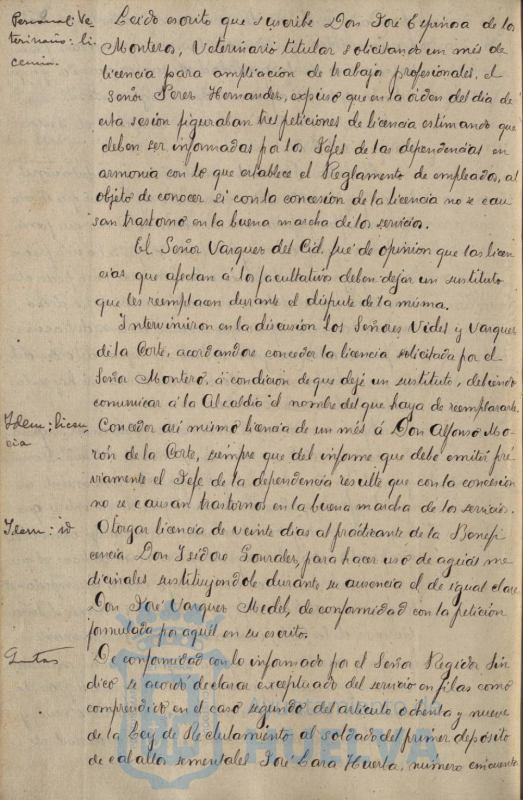 Personal: Ve
terinario: li
cencia.
Leido escrito que suscribe Don José Espinosa de los
Monteros, Veterinario titular solicitando un més de
licencia para ampliación de trabajo profesionales, el
Señor Perez Hernandez, expuso que en la órden del día de
esta sesión figuraban tres peticiones de licencia estimando que
deben ser informadas por los Jefes de las dependencias en
armonia con lo que establece el Reglamento de empleados, al
objeto de conocer si con la concesión de la licencia no se cau
san trastorno en la buena marcha de los servicios.
El Señor Vazquez del Cid, fué de opinion que las licen
cias que afectan á los facultativos deben dejar un sustituto
que les reemplacen durante el disfrute de la misma.
Intervinieron en la discusión los Señores Vides y Vazquez
de la Corte, acordandose conceder la licencia solicitada por el
Señor Montero, á condición de que deje un sustituto, debiendo
comunicar á la Alcaldía el nombre del que haya de reemplazarle.
Idem: licen
cia
Conceder asi mismo licencia de un més á Don Alfonso Mo
rón de la Corte, siempre que del informe que debe emitir pré
viamente el Jefe de la dependencia resulte que con la concesión
no se causan trastornos en la buena marcha de los servicios.
Idem: id
Otorgar licencia de veinte dias al practicante de la Benefi
cencia Don Isidoro Gonzalez, para hacer uso de aguas me
dicinales sustituyendole durante su ausencia el de igual clase
Don José Vazquez Medel, de conformidad con la petición
formulada por aquél en su escrito.
Quintas
De conformidad con lo informado por el Señor Regidor Sin
dico se acordó declarar exceptuado del servicio en filas como
comprendido en el caso segundo del artículo ochenta y nueve
de la Ley de Reclutamiento al soldado del primer depósito
de caballos sementales José Lara Huerta, número cincuenta
HUELVA